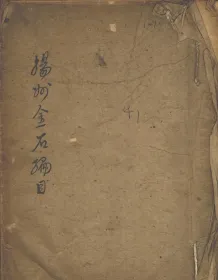 揚州金石編目